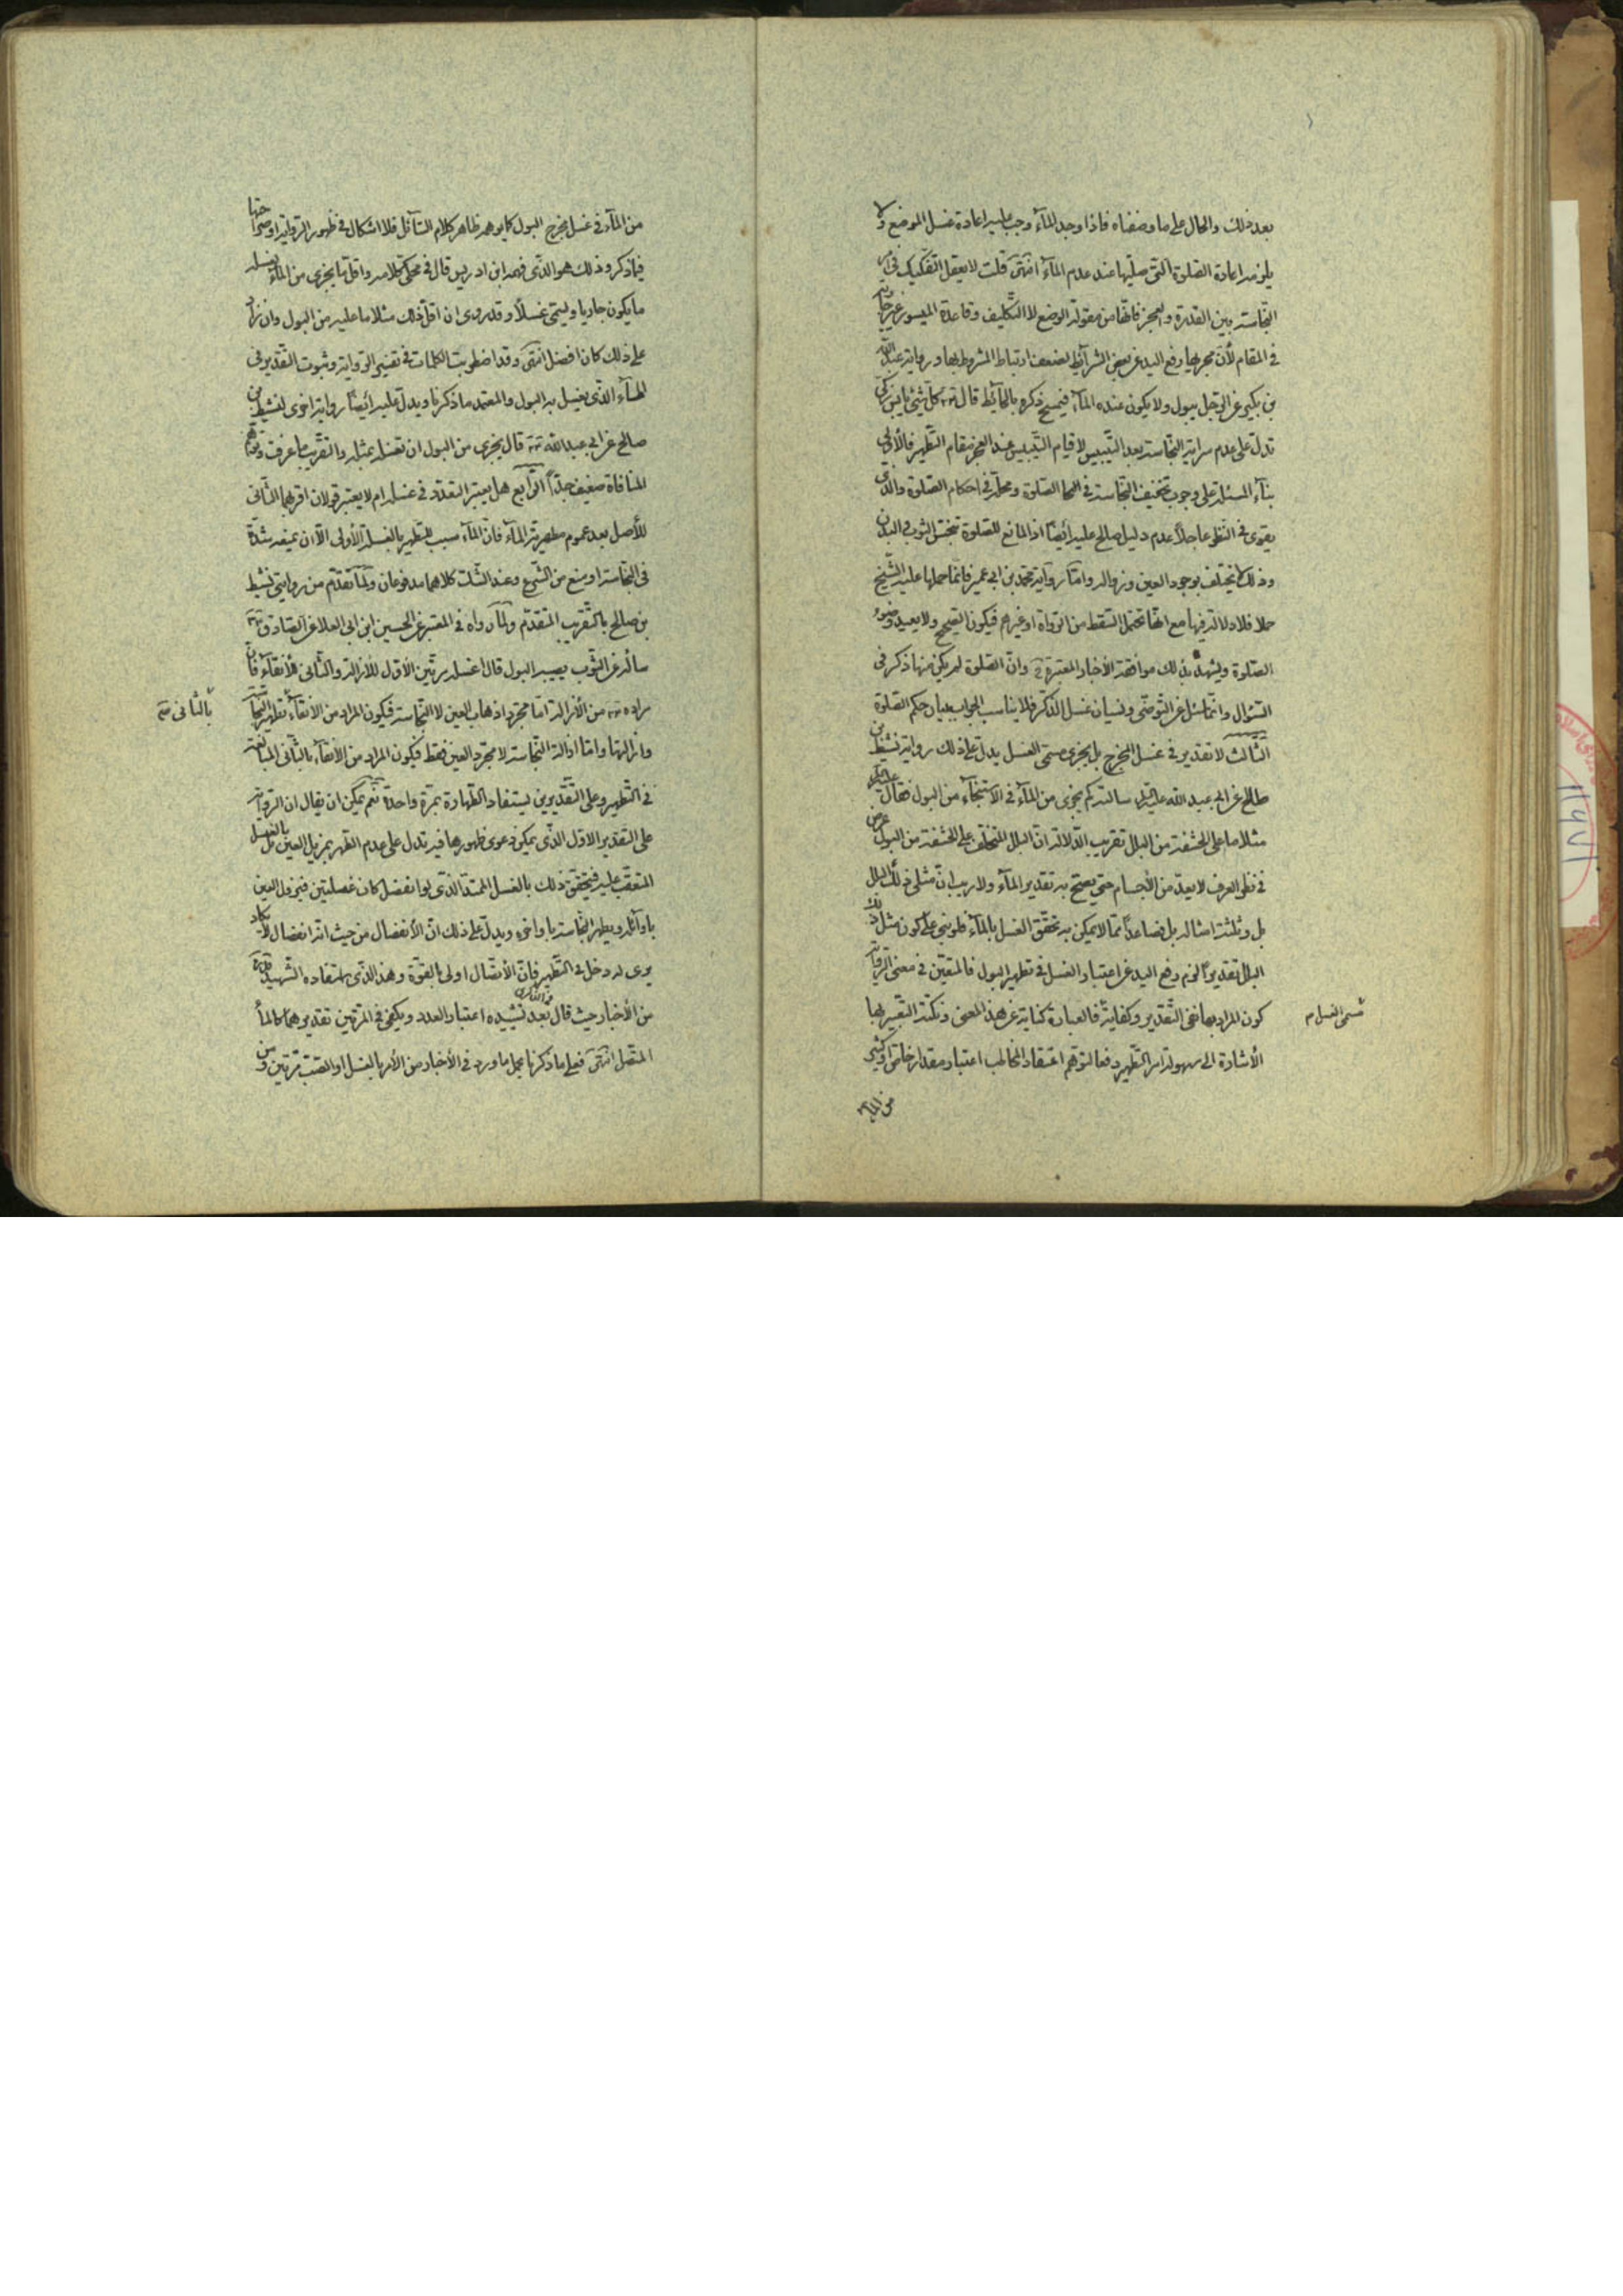 بعد ذلك والحال على ما وصفناه فاذا وجد المآء وجب عليه اعادة غسل الموضع ولا
يلزمه اعادة الصّلوة الّتى صلّيها عند عدم المآء انتهى قلت لا يعقل التفكيك فى
النّجاسة بين القدرة والعجز فانّها من مقولة الوضع لا التّكليف وقاعدة الميسور غير جارية
فى المقام لأنّ مجريها رفع اليد عن بعض الشرآئط لضعف ارتباط المشروط بها ورواية عبد اللّه
بن بكير عن الرّجل يبول ولا يكون عنده المآء فيمسح ذكره بالحآئط قال كلّ شئ يابس زكى
تدلّ على عدم سراية النّجاسة بعد التّيبيس لا قيام التّيبيس عند العجز مقام التّطهير فالأولى
بنآء المسئلة على وجوب تخفيف النّجاسة فى الصّلوة ومحلّه فى احكام الصّلوة والّذى
يقوى فى النّظر عاجلاً عدم دليل صالح عليه ايضًا اذ المانع للصّلوة تنجّس الثوب والبدن
وذلك لا يختلف بوجود العين وزواله وامّا رواية محمّد بن ابى عمير فانّما حملها عليه الشّيخ
حملا فلا دلالة فيها مع انّها تحتمل السّقط من الرّواة او غيرهم فيكون الصّحيح ولا يعيد وضوء
الصّلوة ويشهد بذلك موافقة الأخبار المعتبرة وانّ الصّلوة لم يكن منها ذكر فى
السّؤال وانّما سئل عن التّوضّى ونسيان غسل الذّكر فلا يناسب الجواب ببيان حكم الصّلوة
الثّالث لا تقدير فى غسل المخرج بل يجزى مسمّى الغسل يدلّ على ذلك رواية نشيط بن
صالح عن ابى عبد الله عليه السّلم سالته كم يجزى من المآء فى الأستنجآء من البول فقال
مثلا ما على الحشفة من البلل تقريب الدّلالة انّ البلل المتخلّف على الحشفة من البول
فى نظر العرف لا يعدّ من الأجسام حتى يصحّ به تقدير المآء ولا ريب انّ مثلى ذلك البلل
بل وثلثة امثاله بل فصاعداً ممّا لا يمكن به تحقّق الغسل بالمآء فلو بنى على كون مثل ذلك
البلل تقديراً لزم رفع اليد عن اعتبار الغسل فى تطهير البول فالمتعيّن فى معنى الرّواية
كون المراد بها نفى التّقدير وكفاية فالعبارة كناية عن هذا المعنى ونكتة التّعبير بها
مسمّى الغسل م
الأشارة الى سهولة امر التّطهير دفعا لتوهّم اعتقاد المخاطب اعتبار مقدار خاصّ او كثير
من المآء
من المآء فى غسل مخرج البول كما يوهمه ظاهر كلام السّآئل فلا اشكال فى ظهور الرّواية او صراحتها
فيما ذكر وذلك هو الّذى فهمه ابن ادريس قال فى محكىّ كلامه واقلّ ما يجزى من المآء لغسله
ما يكون جاريا ويسمّى غسلاً وقد روى ان اقلّ ذلك مثلا ما عليه من البول وان زاد
على ذلك كان افضل انتهى وقد اضطربت الكلمات فى تفسير الرّواية وثبوت التّقدير فى
المآء الّذى يغسل به البول والمعتمد ما ذكرنا ويدلّ عليه ايضًا رواية اخرى لنشيط بن
صالح عن ابى عبد الله قال يجزى من البول ان تغسله بمثله والتّقريب ما عرفت وتوهّم
المنافاة ضعيف جدّاً الرّابع هل يعتبر التعدّد فى غسله ام لا يعتبر قولان اقربهما الثّانى
للأصل بعد عموم مطهّرية المآء فانّ المآء سبب للتّطهير بالغسلة الأولى الّا ان يمنعه شدّة
فى النّجاسة او منع من الشّرع وعند الشّك كلاهما مدفوعان ولما تقدّم من روايتى نشيط
بن صالح بالتّقريب المتقدّم ولما رواه فى المعتبر عن الحسين ابن ابى العلا عن الصّادق
سالته عن الثّوب يصيبه البول قال اغسله مرّتين الأوّل للأزالة والثّانى للأنقآء فانّ
مراده من الأزالة امّا مجرّد اذهاب العين لا النّجاسة فيكون المراد من الأنقآء تطهير النّجاسة
بالثّانى
وازالتها وامّا ازالة النّجاسة لا مجرّد العين فقط فيكون المراد من الأنقآء بالثّانى المبالغة
فى التّطهير وعلى التّقديرين يستفاد الطّهارة بمرّة واحدة نعم يمكن ان يقال ان الرّواية
على التقدير الاوّل الّذى يمكن دعوى ظهورها فيه تدل على عدم الطّهر بمزيل العين بل بالغسل
المتعقّب عليه فيتحقّق ذلك بالغسل الممتدّ الّذى لو انفصل كان غسلتين فيزول العين
باوآئله ويطهر النّجاسة باواخره ويدلّ على ذلك انّ الأنفصال من حيث انّه انفصال لا يكاد
يرى له دخل فى التّطهير فانّ الأتّصال اولى بالقوّة وهذا الّذى استفاده الشّهيد
من الأخبار حيث قال بعد تشييده اعتبار العدد ويكفى فى المرّتين تقديرهما كالمآء
المتّصل انتهى فعلى ما ذكرنا يحمل ما ورد فى الأخبار من الأمر بالغسل او الصّبّ مرّتين ومن